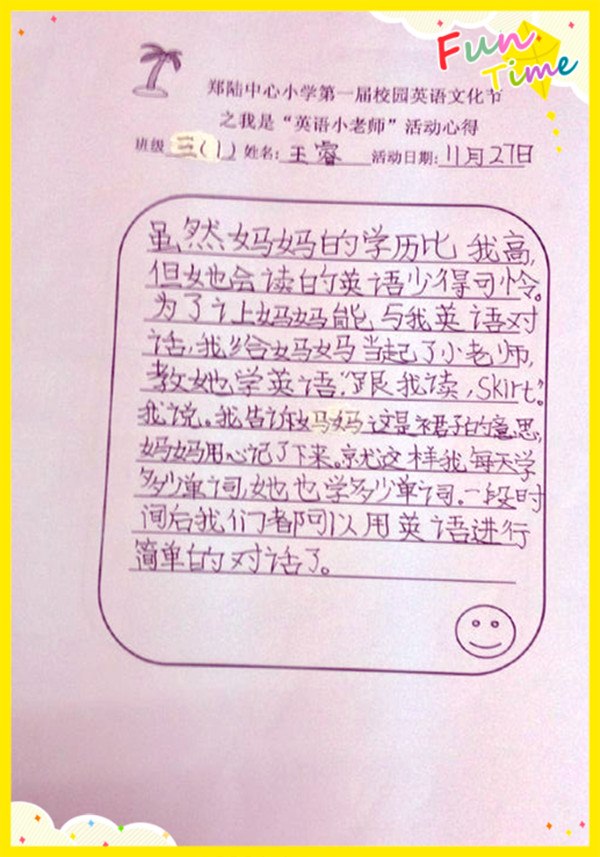 Fun
Time
郑陆中心小学第一届校园英语文化节
之我是“英语小老师”活动心得
班级 三(1) 姓名: 王睿 活动日期: 11月27日
虽然妈妈的学历比我高,
但她会读的英语少得可怜。
为了让妈妈能与我英语对
话,我给妈妈当起了小老师,
教她学英语,“跟我读,skirt”。
我说。我告诉妈妈这是裙子的意思,
妈妈用心记了下来。就这样我每天学
多少单词,她也学多少单词。一段时
间后我们都可以用英语进行
简单的对话了。